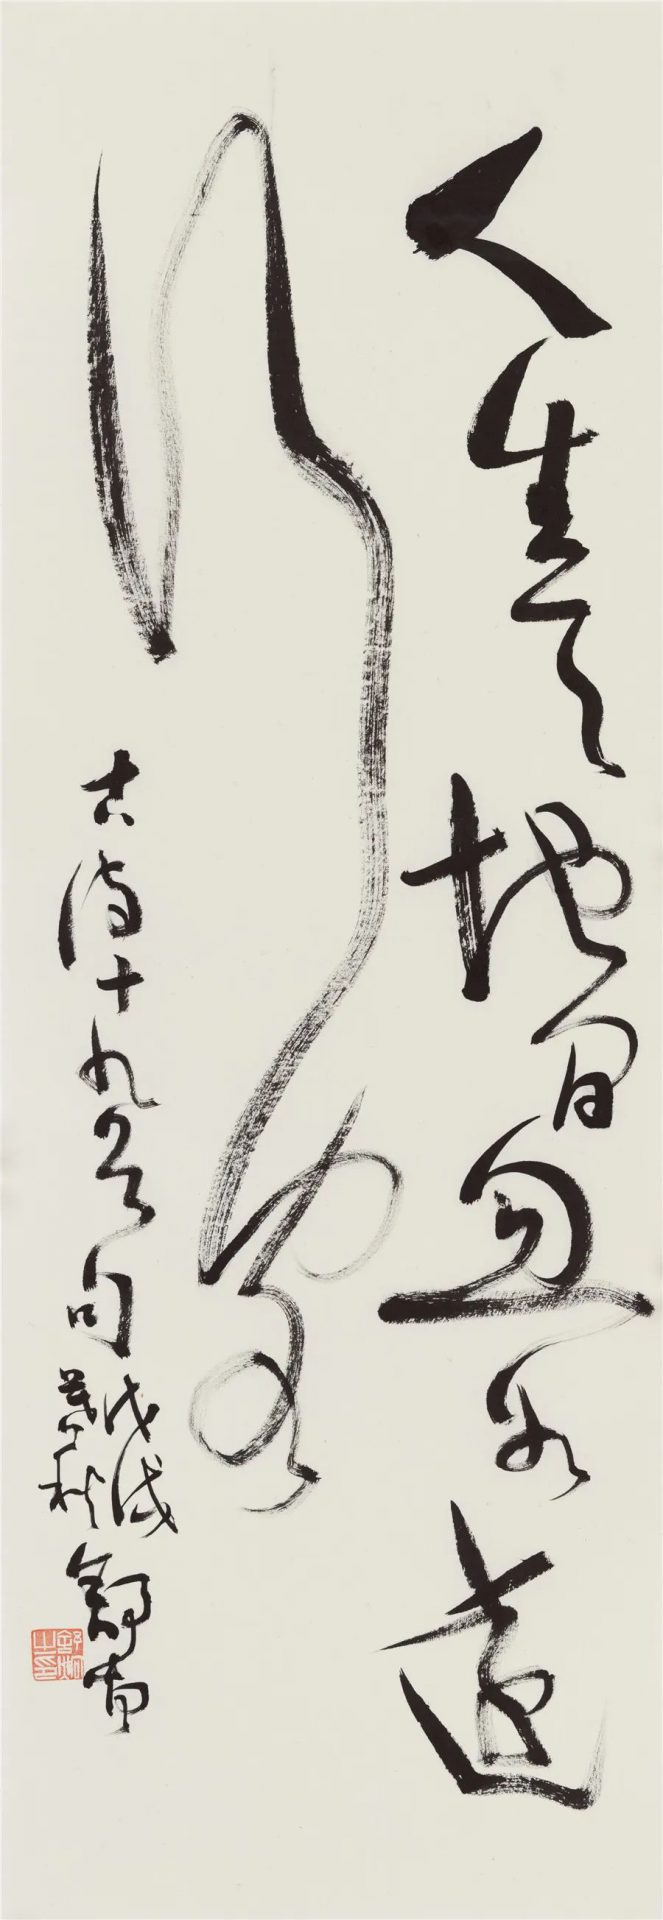 人生天地間忽如遠
行客
古詩十九首句
戊戌
暮秋
舒